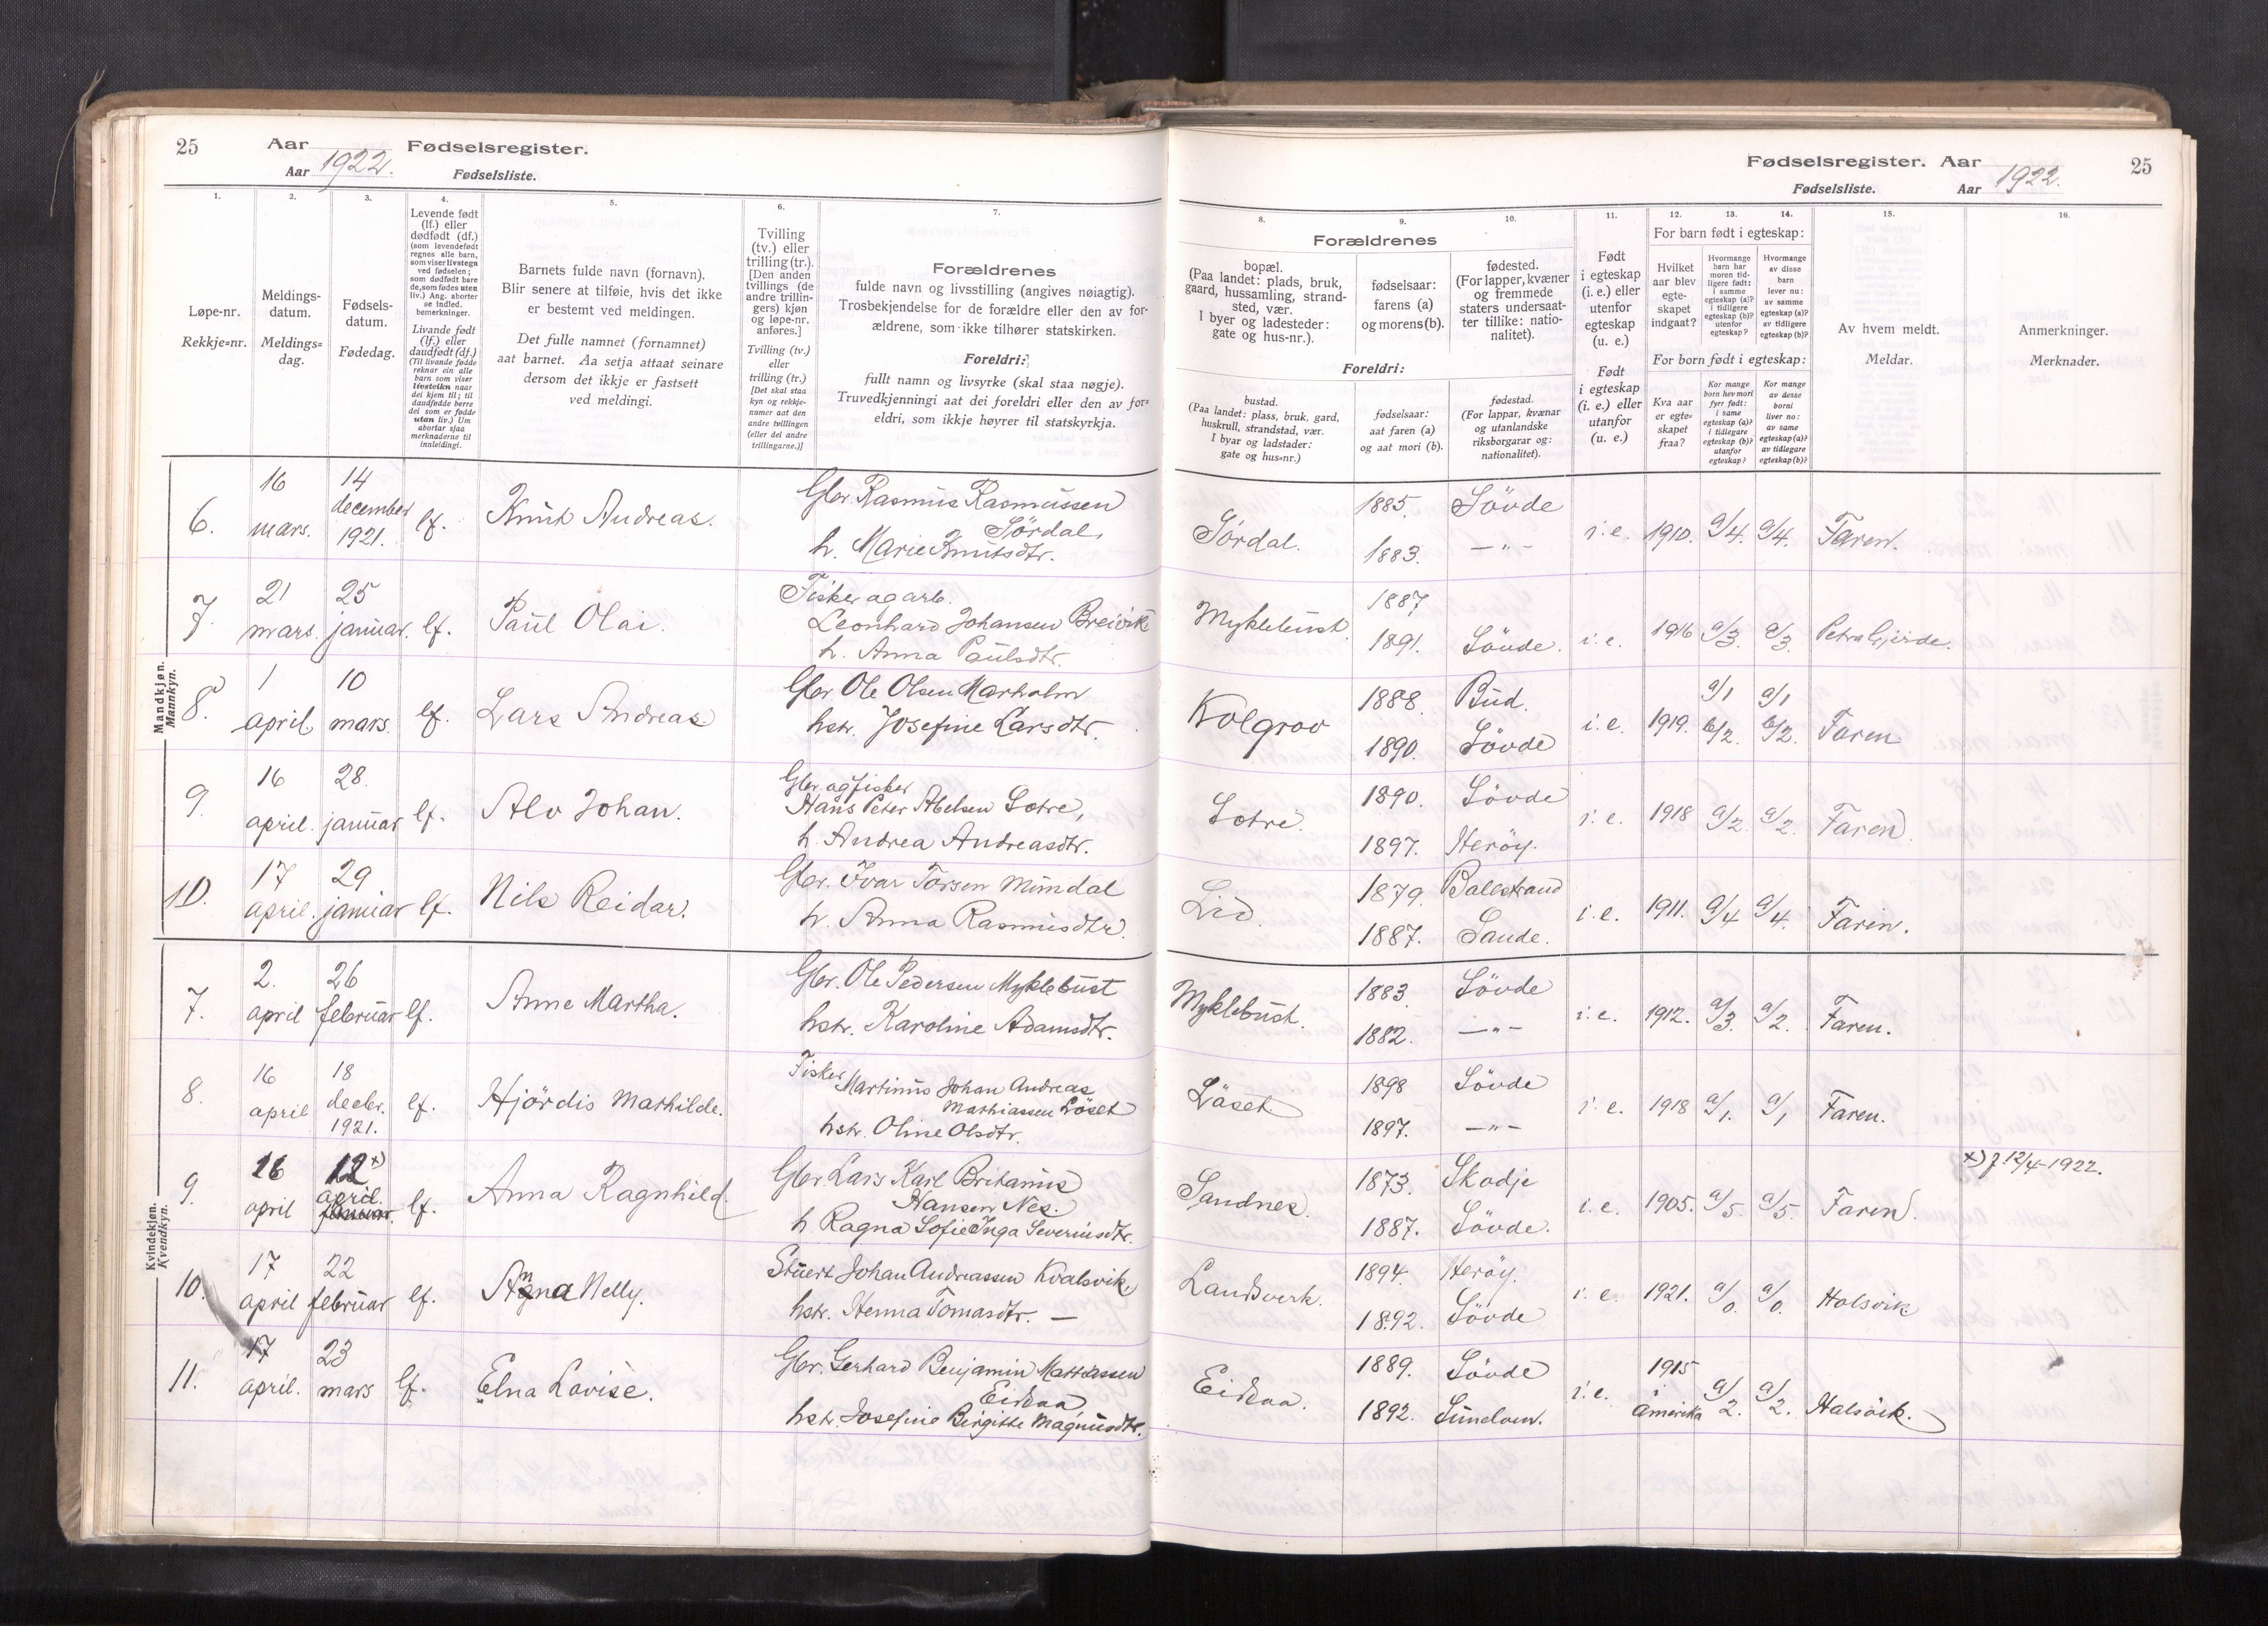 25
Aar
Fødselsregister.
Aar 1922.
Fødselsliste.
1.
2.
3.
4.
5.
6.
7.
Løpe-nr.
Rekkje=nr.
Meldings-
datum.
Meldings=
dag.
Fødsels-
datum.
Fødedag.
Levende født
(lf.) eller
dødfødt (df.)
(som levendefødt
regnes alle barn,
som viser livstegn
ved fødselen;
som dødfødt bare
de, som fødes uten
liv.) Ang. aborter
se indled.
bemerkninger.
Livande født
(lf.) eller
daudfødt (df.)
(Til livande fødde
reknar ein alle
barn som viser
livsteikn naar
dei kjem til; til
daudfødde berre
dei som er fødde
utan liv.) Um
abortar sjaa
merknaderne til
innleidingi.
Barnets fulde navn (fornavn).
Blir senere at tilføie, hvis det ikke
er bestemt ved meldingen.
Det fulle namnet (fornamnet)
aat barnet. Aa setja attaat seinare
dersom det ikkje er fastsett
ved meldingi.
Tvilling
(tv.) eller
trilling (tr.).
[Den anden
tvillings (de
andre trillin-
gers) kjøn
og løpe-nr.
anføres.]
Tvilling (tv.)
eller
trilling (tr.)
[Det skal staa
kyn og rekkje-
numer aat den
andre tvillingen
(eller dei andre
trillingarne.)]
Forældrenes
fulde navn og livsstilling (angives nøiagtig).
Trosbekjendelse for de forældre eller den av for-
ældrene, som ikke tilhører statskirken.
Foreldri:
fullt namn og livsyrke (skal staa nøgje).
Truvedkjenningi aat dei foreldri eller den av for=
eldri, som ikkje høyrer til statskyrkja.
Mandkjøn.
Mannkyn.
6.
16
mars.
14
december
1921.
lf.
Knut Andreas.
Gbr Rasmus Rasmussen
Sördal,
h. Marie Knutsdtr.
7.
21
mars.
25
januar.
lf.
Paul Olai.
Fisker og arb.
Leonhard Johansen Breivik
h. Anna Paulsdtr.
8.
1
april
10
mars.
lf.
Lars Andreas
Gbr. Ole Olsen Marholm
hstr. Josefine Larsdtr.
9.
16
april.
28.
januar
lf.
Alv Johan.
Gbr. og fisker
Hans Peter Abelsen Sætre,
h. Andrea Andreasdtr.
10.
17
april.
29
januar
lf.
Nils Reidar.
Gbr. Ivar Torsen Mundal
h. Anna Rasmusdtr.
Kvindekjøn.
Kvendkyn.
7.
2.
april
26
februar
lf.
Anne Martha.
Gbr. Ole Pedersen Myklebust
hstr. Karoline Adamsdtr.
8.
16
april
18
decbr.
1921.
lf.
Hjördis Mathilde.
Fisker Martinus Johan Andreas
Mathiassen Löset
hstr. Oline Olsdtr.
9.
16
april
12 x)
april.
januar.
lf.
Anna Ragnhild
Gbr Lars Karl Britanus
Hansen Nes.
h. Ragna Sofie Inga Severinsdtr.
10.
17
april
22
februar
lf.
Anna Nelly.
Stuert Johan Andreassen Kvalsvik,
hstr. Henna Tomasdtr. —
11.
17
april.
23
mars
lf.
Elna Lovise.
Gbr. Gerhard Benjamin Mattiassen
Eidsaa
hstr. Josefine Birgitte Magnusdtr.
Fødselsregister. Aar
1922.
25
Fødselsliste.
Aar
8.
9.
10.
11.
12.
13.
14.
15.
16.
Forældrenes
bopæl.
(Paa landet: plads, bruk,
gaard, hussamling, strand-
sted, vær.
I byer og ladesteder:
gate og hus-nr.).
fødselsaar:
farens (a)
og morens (b).
fødested.
(For lapper, kvæner
og fremmede
staters undersaat-
ter tillike: natio-
nalitet).
Foreldri:
bustad.
(Paa landet: plass, bruk, gard,
huskrull, strandstad, vær.
I byar og ladstader:
gate og hus=nr.)
fødselsaar:
aat faren (a)
og aat mori (b).
fødestad.
(For lappar, kvænar
og utanlandske
riksborgarar og:
nationalitet).
Født
i egteskap
(i. e.) eller
utenfor
egteskap
(u. e.)
Født
i egteskap
(i. e.) eller
utanfor
(u. e.)
For barn født i egteskap:
Hvilket
aar blev
egte-
skapet
indgaat?
Hvormange
barn har
moren tid-
ligere født:
i samme
egteskap (a)?
i tidligere
egteskap (b)?
utenfor
egteskap?
Hvormange
av disse
barn
lever nu:
av samme
egteskap (a)?
av tidligere
egteskap (b)?
For born født i egteskap:
Kva aar
er egte=
skapet
fraa?
Kor mange
born hev mori
fyrr født:
i same
egteskap (a)?
i tidlegare
egteskap (b)?
utanfor
egteskap?
Kor mange
av desse
borni
liver no:
av same
egteskap (a)?
av tidlegare
egteskap (b)?
Av hvem meldt.
Meldar.
Anmerkninger.
Merknader.
Sördal.
1885.
1883.
Sövde
—"—
i. e.
1910.
a/4.
a/4.
Faren.
Myklebust.
1887
1891.
Sövde.
i. e.
1916
a/3.
a/3.
Petra Gjerde.
Kolgrov
1888.
1890.
Bud.
Sövde
i. e.
1919.
a/1
b/2.
a/1
b/2.
Faren
Sætre.
1890.
1897.
Sövde
Heröy.
i. e.
1918
a/2
a/2.
Faren
Lid.
1879.
1887.
Balestrand
Sande.
i. e.
1911.
a/4
a/4.
Faren.
Myklebust.
1883.
1882.
Sövde
—"—
i. e.
1912.
a/3.
a/2.
Faren.
Löset
1898
1897.
Sövde
—"—
i. e.
1918
a/1.
a/1
Faren.
Sandnes.
1873.
1887.
Skodje
Sövde.
i. e.
1905.
a/5.
a/5.
Faren.
x) f. 12/4-1922.
Landverk.
1894.
1892.
Heröy.
Sövde
i. e.
1921.
a/0.
a/0.
Halsvik
Eidsaa.
1889.
1892.
Sövde
Sunelven.
i. e.
1915
i
Amerika
a/2.
a/2.
Halsvik.